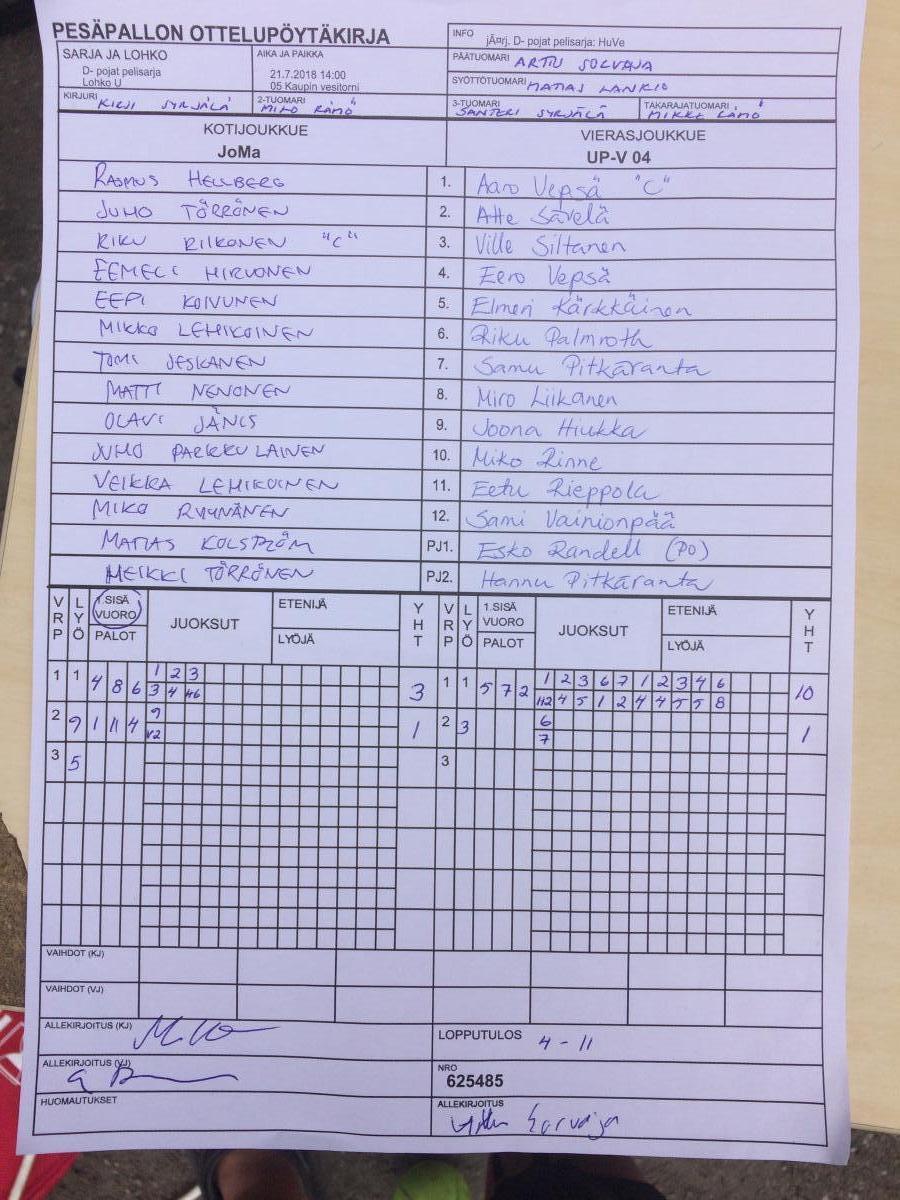 PESÄPALLON OTTELUPÖYTÄKIRJA
INFO
jÄ¤rj. D- pojat pelisarja: HuVe
SARJA JA LOHKO
D- pojat pelisarja
Lohko U
AIKA JA PAIKKA
21.7.2018 14:00
05 Kaupin vesitorni
PÄÄTUOMARI ARTTU
SYÖTTÖTUOMARI MATIAS
KIRJURI KIRJI SYRJÄLÄ
2-TUOMARI MIKO RÄMÖ
3-TUOMARI SANTERI SYRJÄLÄ
TAKARAJATUOMARI MIKKE RÄMÖ
KOTIJOUKKUE
JoMa
VIERASJOUKKUE
UP-V 04
RASMUS HELLBERG 1. Aaro Vepsä "C"
JUHO TÖRRÖNEN 2. Atte Sävelä
RIKU RIIKONEN "C" 3. Ville Siltanen
EEMELI HIRVONEN 4. Eero Vepsä
EEPI KOIVUNEN 5. Elmeri Kärkkäinen
MIKKO LEHIKOINEN 6. Riku Palmroth
TOMI JESKANEN 7. Samu Pitkäranta
MATTI NENONEN 8. Miro Liikanen
OLAVI JÄNIS 9. Joona Hiukka
JUHO PARKKULAINEN 10. Miko Rinne
VEIKKA LEHIKOINEN 11. Eetu Rieppola
MIKO RYYNÄNEN 12. Sami Vainionpää
MATIAS KOLSTRÖM PJ1. Esko Randell (PO)
HEIKKI TÖRRÖNEN PJ2. Hannu Pitkäranta
VRP LYÖ 1.SISÄ VUORO PALOT JUOKSUT ETENIJÄ LYÖJÄ YHT VRP LYÖ 1.SISÄ VUORO PALOT JUOKSUT ETENIJÄ LYÖJÄ YHT
1 1 4 8 6 1 2 3 3 1 1 5 7 2 1 2 3 6 7 1 2 3 4 6 10
3 4 4 5 1 2 4 4 5 5 8
2 9 1 11 4 9 1 2 3 6 1
V2 7
3 5 3
VAIHDOT (KJ)
VAIHDOT (VJ)
ALLEKIRJOITUS (KJ)
LOPPUTULOS 4 - 11
ALLEKIRJOITUS (VJ)
NRO
625485
HUOMAUTUKSET
ALLEKIRJOITUS